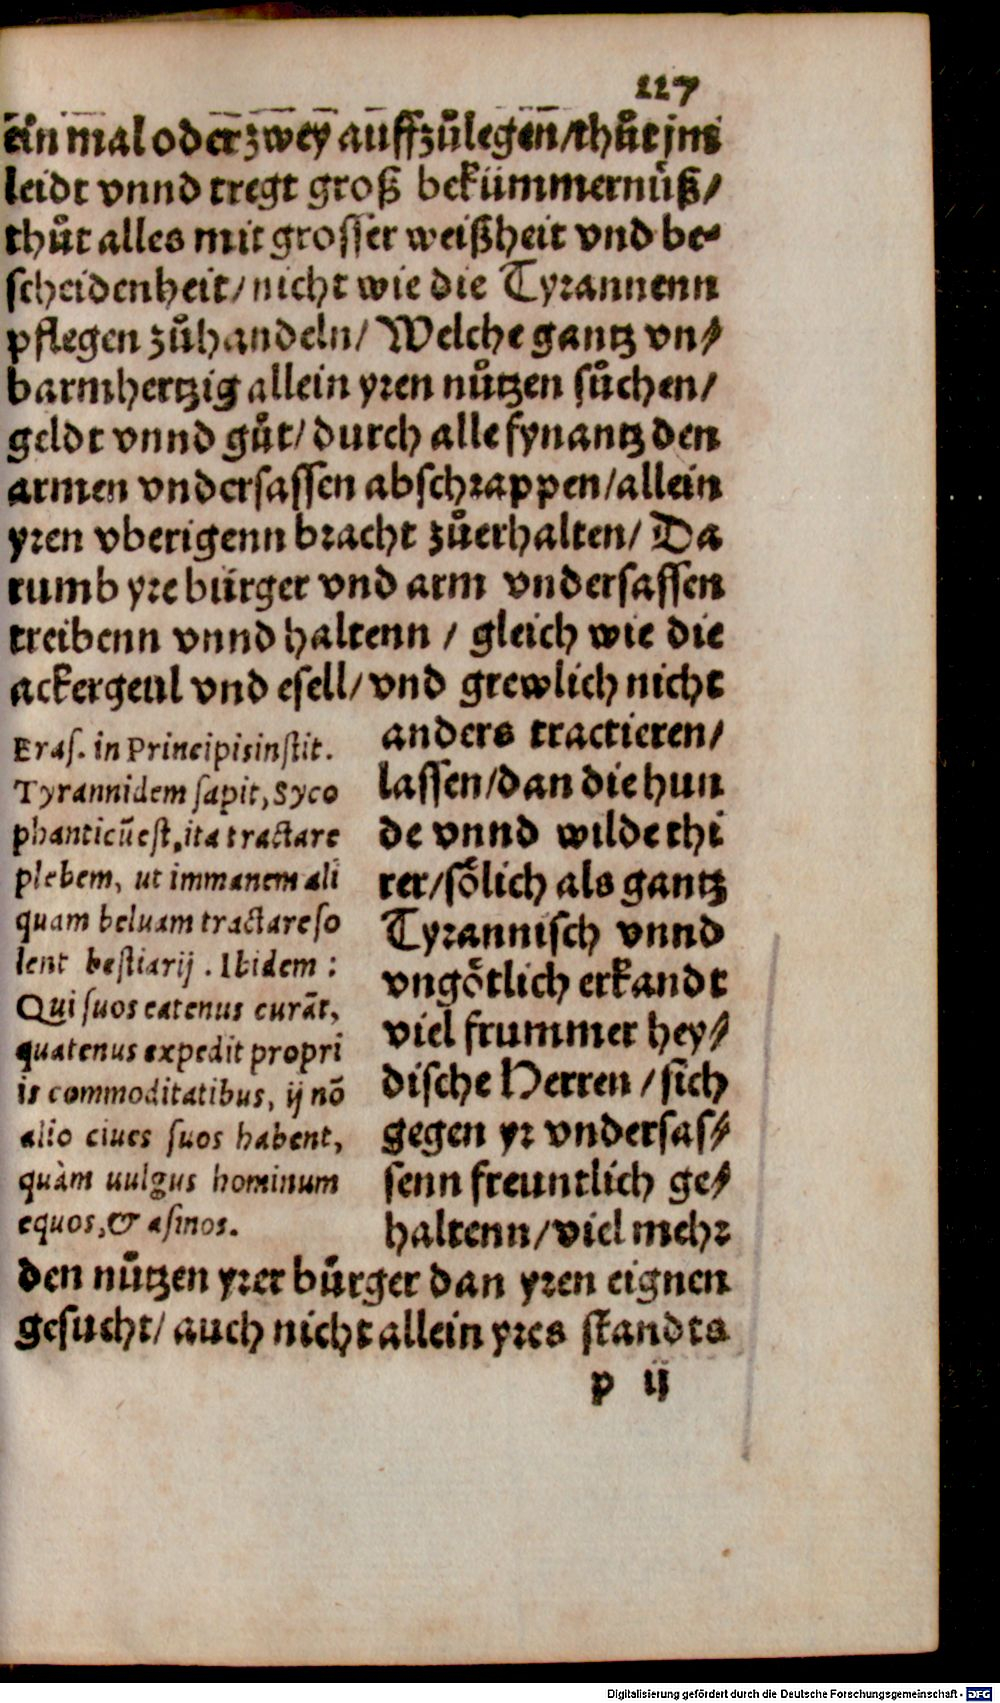 117
ein mal oder zwey auffzůlegen/thůt jm
leidt vnnd tregt groß bekümmernüß/
thůt alles mit grosser weißheit vnd be-
scheidenheit/nicht wie die Tyrannenn
pflegen zůhandeln/ Welche gantz vn/
barmhertzig allein yren nůtzen sůchen/
geldt vnnd gůt/durch alle fynantz den
armen vndersassen abschrappen/allein
yren vberigenn bracht zůerhalten/ Da
rumb yre bürger vnd arm vndersassen
treibenn vnnd haltenn / gleich wie die
ackergeul vnd esell/vnd grewlich nicht
anders tractieren/
lassen/dan die hun
de vnnd wilde thi
rer/sölich als gantz
Tyrannisch vnnd
vngötlich erkandt
viel frummer hey/
dische Herren / sich
gegen yr vndersas/
senn freuntlich ge/
haltenn/viel mehr
Eras. in Principis instit.
Tyrannidem sapit, Syco
phanticū est, ita tractare
plebem, ut immanem ali
quam beluam tractare so
lent bestiarij . Ibidem :
Qui suos eatenus curāt,
quatenus expedit propri
is commoditatibus, ij nō
alio ciues suos habent,
quàm uulgus hominum
equos, & asinos.
den nůtzen yrer bůrger dan yren eignen
gesucht/ auch nicht allein yres standts
p ij
Digitalisierung gefördert durch die Deutsche Forschungsgemeinschaft - DFG